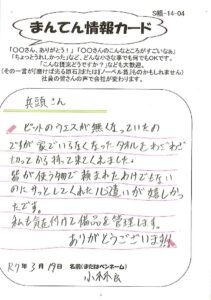 S総-14-04
まんてん情報カード
「〇〇さん、ありがとう！」「〇〇さんのこんなところがすごいなぁ」
「ちょっとうれしかった」など、どんな小さな事でも何でもOKです。
「こんな提案どうですか？」なども大歓迎。
(その一言が「磨けば光る原石」または「ノーベル賞」ものかもしれません)
社員の皆さんの声で会社が変わります。
兵頭さん
ピットのウエスが無くなっていたの
ですが家でいらなくなったタオルをわざわざ
切ってから持って来てくれました。
皆が使う物で頼まれたわけでもない
のにサッとしてくれた心遣いが嬉しかっ
たです。
私も責任付けて備品を管理します。
ありがとうございます!!
R7年3月19日 名前(またはペンネーム)
小林